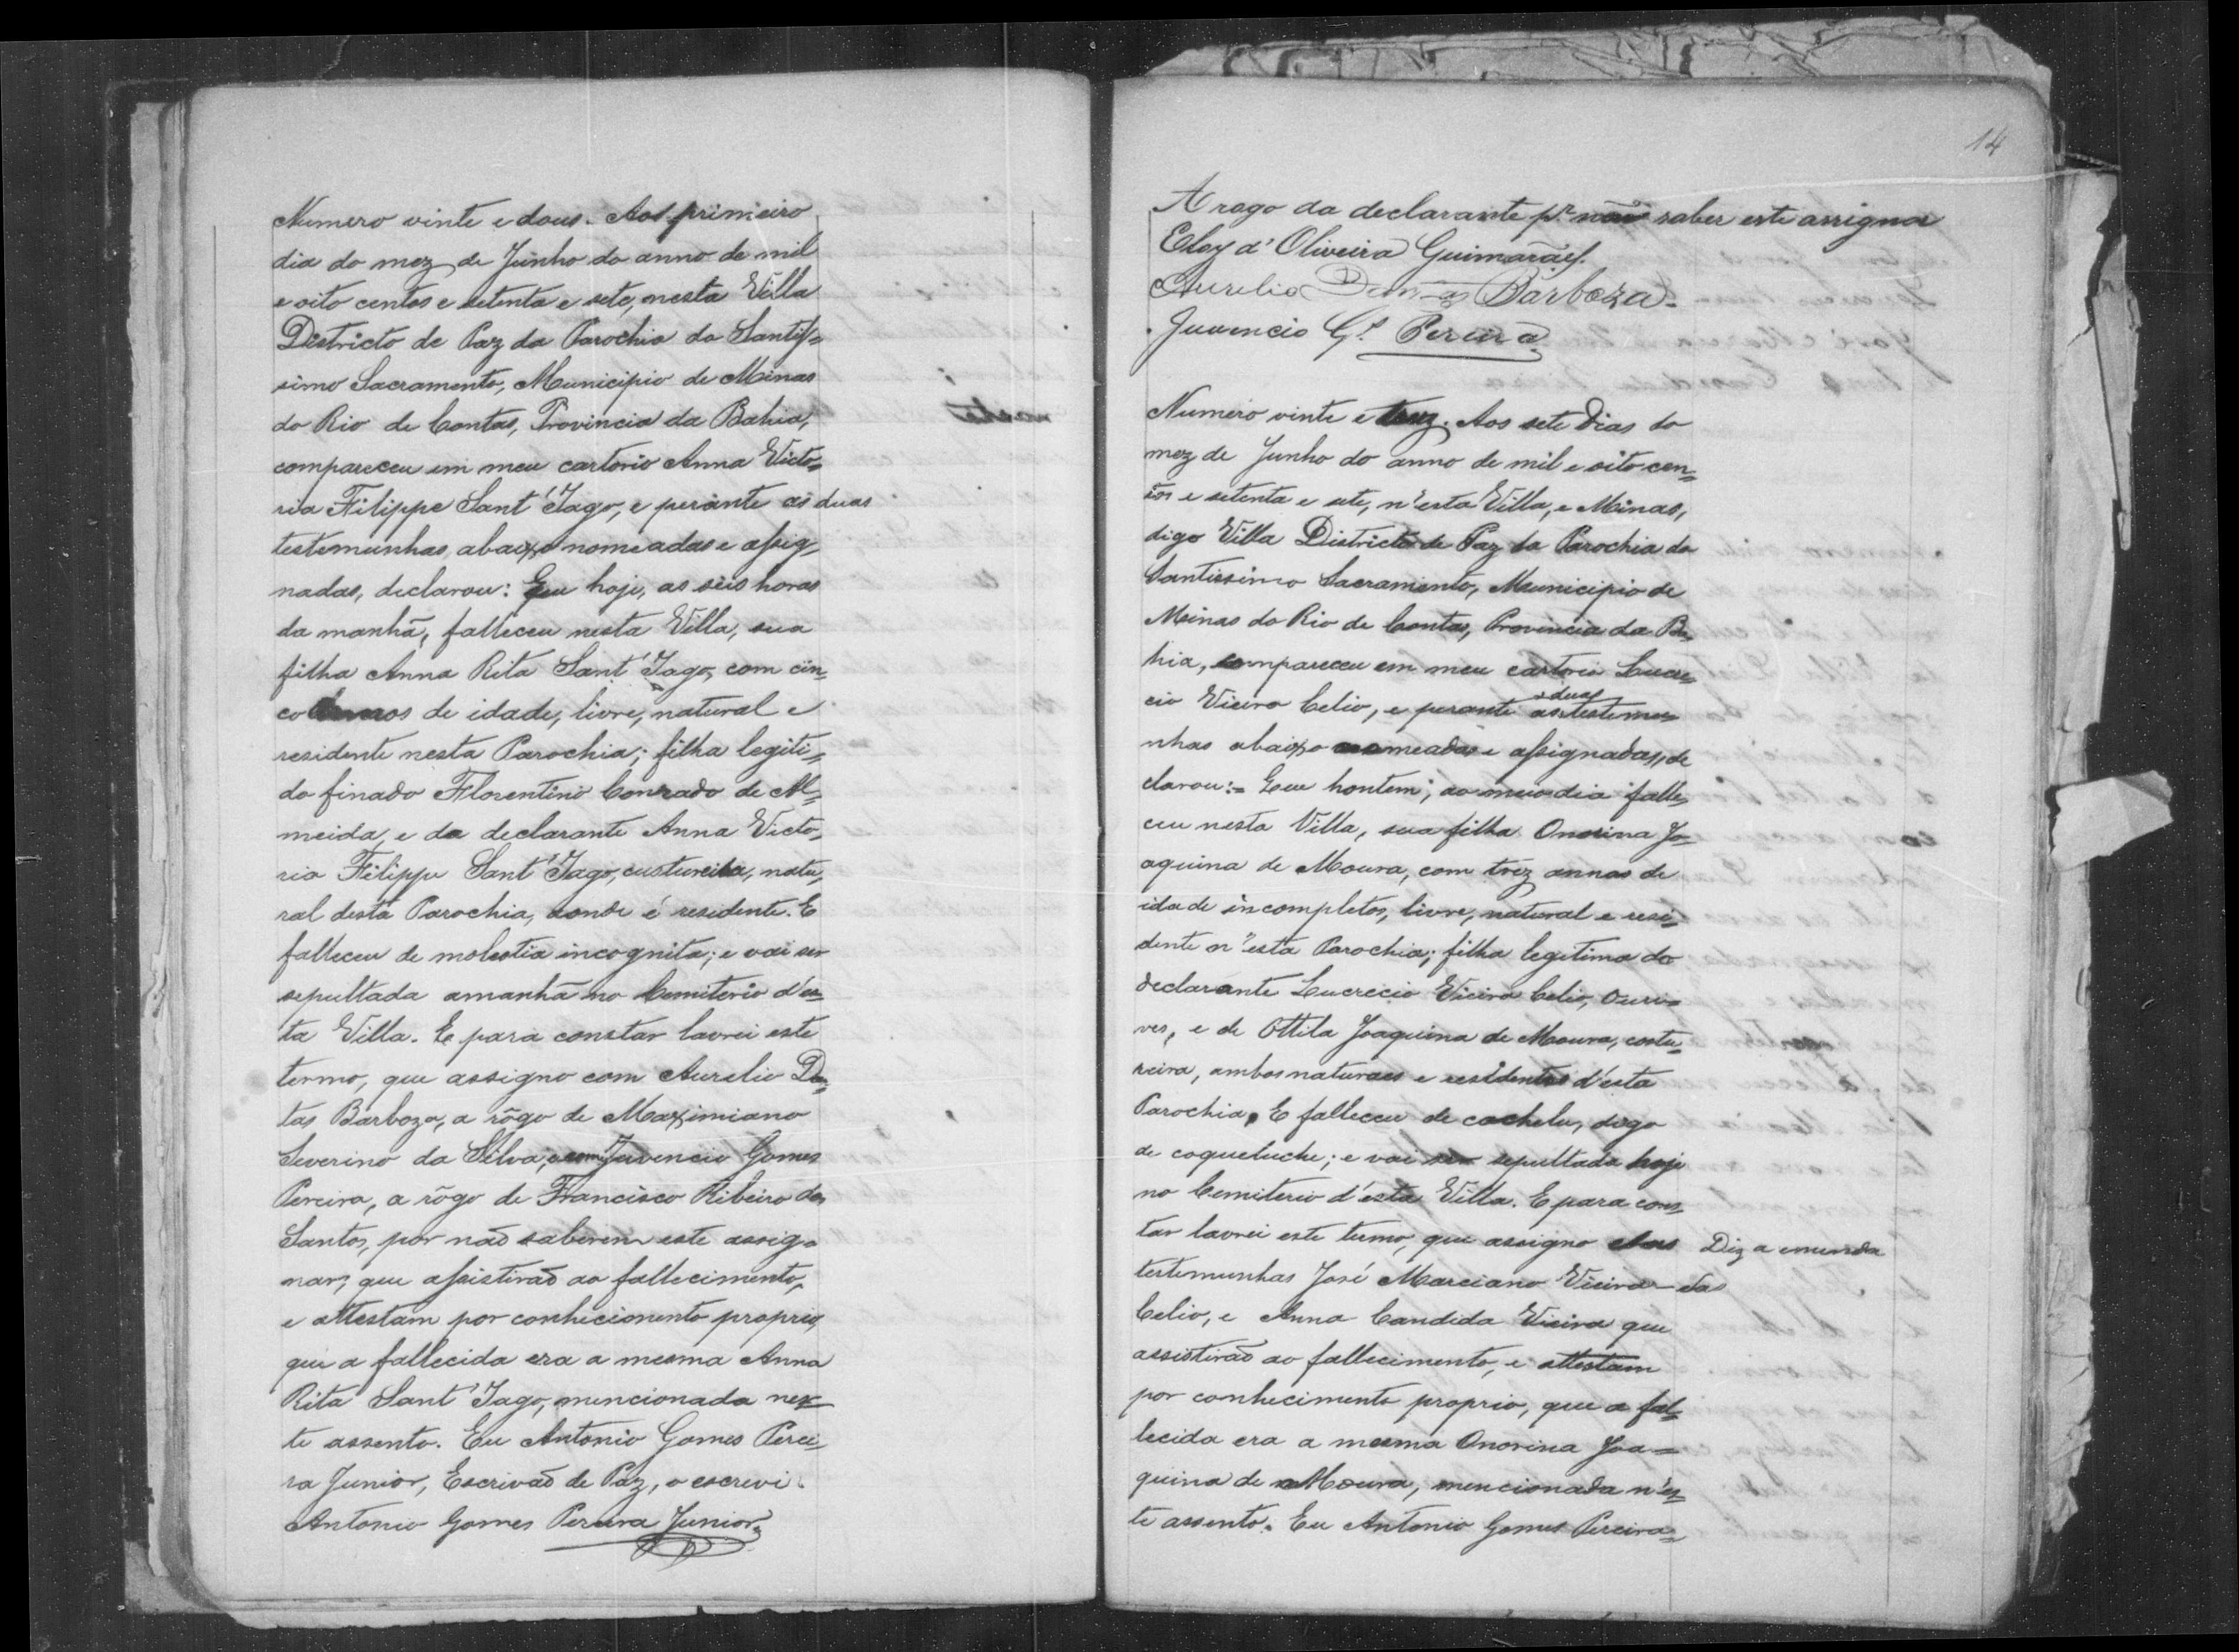 Numero vinte e dous. Aos primeiro
dia do mez de Junho do anno de mil
e oito centos e setenta e sete, nesta Villa
Districto de Paz da Parochia do Santis=
simo Sacramento, Municipio de Minas
do Rio de Contas, Provincia da Bahia,
compareceu em meu cartorio Anna Victo=
ria Filippe Sant'Iago, e perante as duas
testemunhas abaixo nomeadas e assig=
nadas, declarou: Que hoje, as seis horas
da manhã, falleceu nesta Villa, sua
filha Anna Rita Sant'Iago, com cin=
co de idade, livre, natural e
residente nesta Parochia; filha legiti=
do finado Florentino Conrado de Al=
meida, e da declarante Anna Victo=
ria Filippe Sant'Iago, custureira, natu=
ral desta Parochia, aonde é residente. E
falleceu de molestia incognita; e vai ser
sepultada amanhã no Cemiterio d'es=
ta Villa. E para constar lavrei este
termo, que assigno com Aurelio Dan=
tas Barboza, a rôgo de Maximiano
Severino da Silva, e com Juvencio Gomes
Pereira, a rôgo de Francisco Ribeiro dos
Santos, por naõ saberem este assig=
nar, que assistiraõ ao fallecimento,
e attestam por conhecimento proprio,
que a fallecida era a mesma Anna
Rita Sant'Iago, mencionada nes=
te assento. Eu Antonio Gomes Perei=
ra Junior, Escrivaõ de Paz, o escrevi.
Antonio Gomes Pereira Junior.
14
A rogo da declarante pr. não saber este assignar
Eloy d'Oliveira Guimarães.
Aurelio Dantas Barboza.
Juvencio Gs. Pereira
Numero vinte e trez. Aos sete dias do
mez de Junho do anno de mil e oito cen=
tos e setenta e sete, n'esta Villa, e Minas,
digo Villa Districto de Paz da Parochia do
Santissimo Sacramento, Municipio de
Minas do Rio de Contas, Provincia da Ba=
hia, compareceu em meu cartorio Lucre=
cio Vieira Celio, e perante as duas testemu=
nhas abaixo nomeadas e assignadas, de
clarou:= Que hontem, ao meio dia falle=
ceu nesta Villa, sua filha Onorina Jo=
aquina de Moura, com trez annos de
idade incompletos, livre, natural e resi=
dente n'esta Parochia; filha legitima do
declarante Lucrecio Vieira Celio, Ouri=
ves, e de Ottila Joaquina de Moura, costu=
reira, ambos naturaes e residentes d'esta
Parochia. E falleceu de cochelu, digo
de coqueluche; e vai ser sepultada hoje
no Cemiterio d'esta Villa. E para cons=
tar lavrei este termo, que assigno Diz a emenda
testemunhas José Marciano Vieira — das
Celio, e Anna Candida Vieira que
assistiraõ ao fallecimento, e attestam
por conhecimento proprio, que a fal=
lecida era a mesma Onorina Joa=
quina de Moura, mencionada n'es=
te assento. Eu Antonio Gomes Pereira=